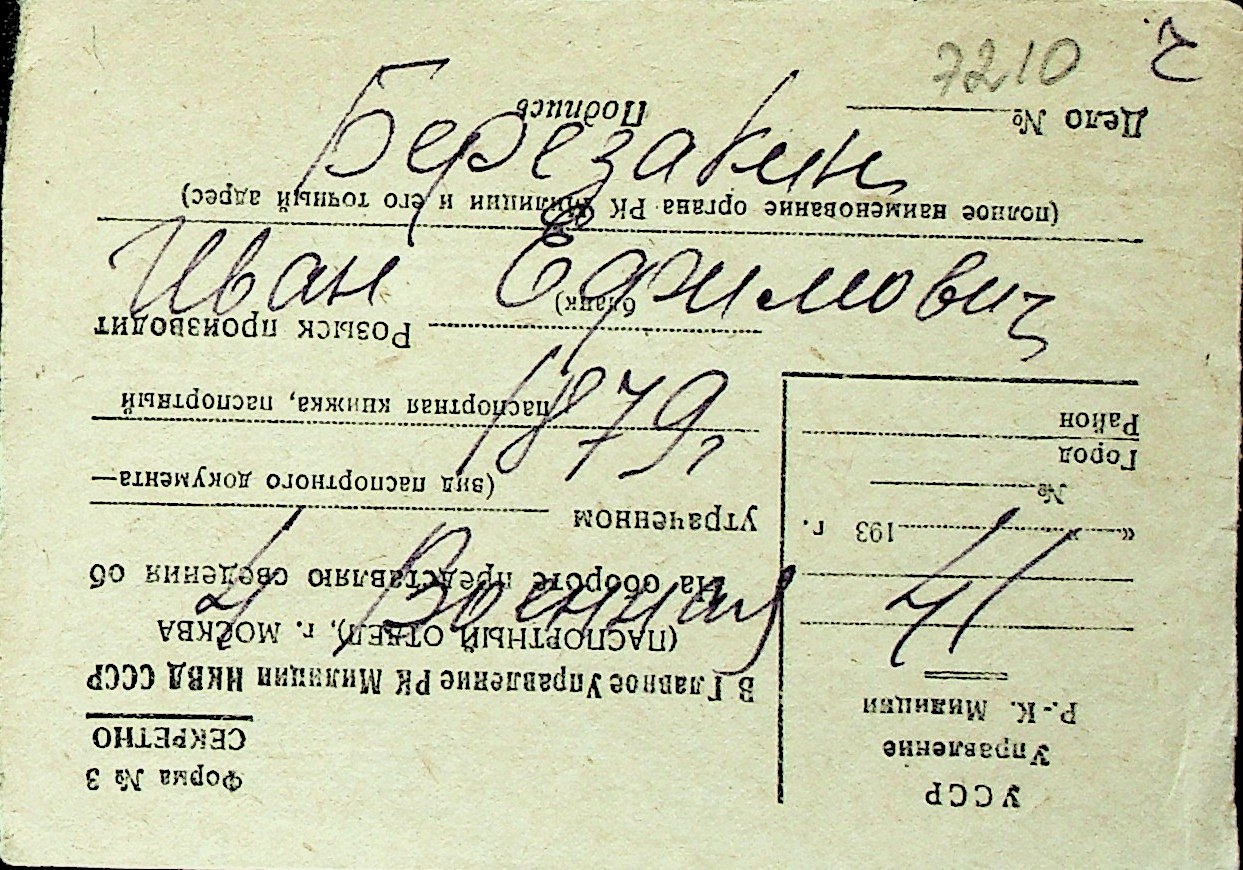 7210
ч
Березакин
Иван Ефимович
1879 г
4 Военная 41
УССР
Управление
Р.-К. Милиции
« » 193 г.
№
Город
Район
Форма № 3
СЕКРЕТНО
В Главное Управление РК Милиции НКВД СССР
(ПАСПОРТНЫЙ ОТДЕЛ), г. МОСКВА
На обороте представляю сведения об
утраченном
(вид паспортного документа—
паспортная книжка, паспортный
бланк)
Розыск производит
(полное наименование органа РК Милиции и его точный адрес)
Дело №
Подпись